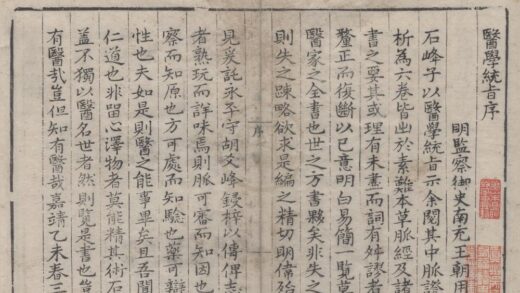 醫學統旨序
明監察御史南充王朝用
石峰子以醫學統旨示余閱其中脈證
析為六卷皆出於素難本草脈經及諸
書之要其或理有未盡而詞有舛謬者
釐正而復斷以已意明白易簡一覽莫
醫家之全書也世之方書夥矣非失之
則失之踈略欲求是編之精切明俻殆
見爰託永平守胡爻峰鋟梓以傳俾志
者熟玩而詳味焉則脈可審而知因也
察而知原也方可處而知驗也藥可辯
性也夫如是則醫之能事畢矣且吾聞
仁道也非留心澤物者莫能精其術石
蓋不獨以醫名世者然則覽是書也豈
有醫哉豈但知有醫哉嘉靖乙未春三
序